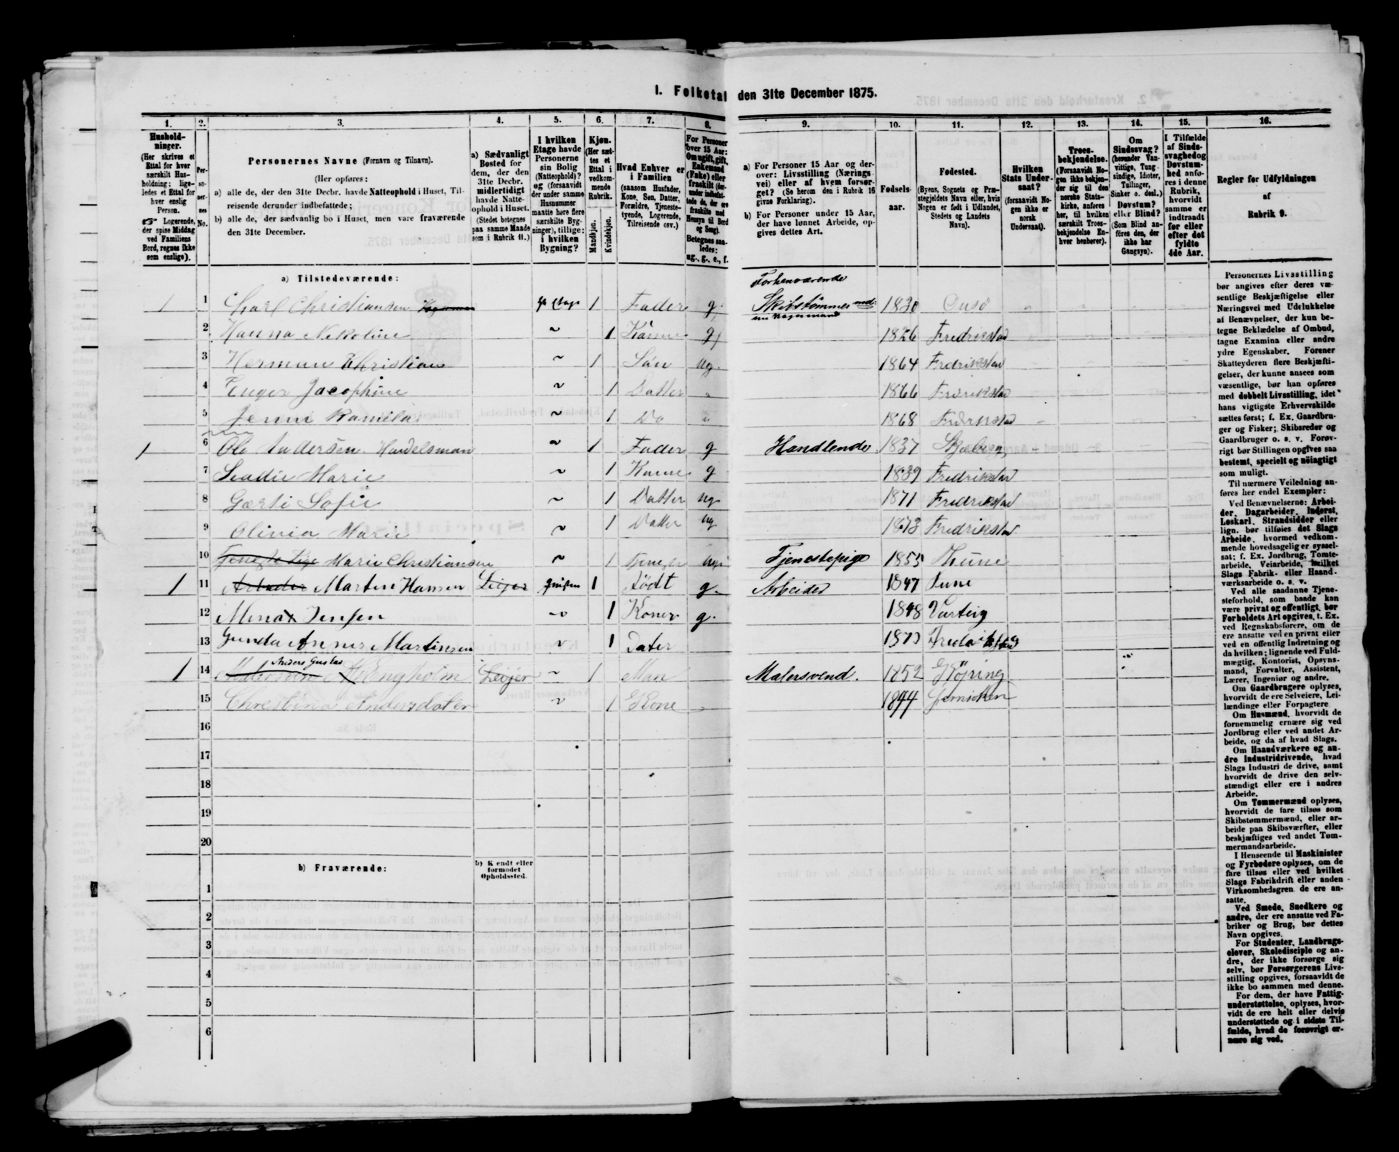 1. Folketal den 31te December 1875.
1. 2. 3. 4. 5. 6. 7. 8. 9. 10. 11. 12. 13. 14. 15. 16.
Hushold-
ninger.
(Her skrives et
Ettal for hver
særskilt Hus-
holdning; lige-
ledes et Ettal for
hver enslig
Person.
☞ Logerende,
der spise Middag
ved Familiens
Bord, regnes ikke
som enslige).
Per-
so-
ner-
nes
No.
Personernes Navne (Fornavn og Tilnavn).
(Her opføres:
a) alle de, der den 31te Decbr. havde Natteophold i Huset, Til-
reisende derunder indbefattede;
b) alle de, der sædvanlig bo i Huset, men vare fraværende
den 31te December.
a) Sædvanligt
Bosted for
dem, der den
31te Decbr.
midlertidigt
havde Natte-
ophold i Huset.
(Stedet betegnes
paa samme Maade
som i Rubrik 11.)
I hvilken
Etage havde
Personerne
sin Bolig
(Natteophold)?
og (forsaavidt
der under samme
Husnummer
maatte høre flere
særskilte Byg-
ninger), tillige:
i hvilken
Bygning?
Kjøn.
(Her sæt-
tes et
Ettal i
vedkom-
mende
Rubrik.
Mandkjøn.
Kvindekjøn.
Hvad Enhver er
i Familien
(saasom Husfader,
Kone, Søn, Datter,
Forældre, Tjeneste-
tyende, Logerende,
Tilreisende osv.)
For Personer
over 15 Aar:
Om ugift, gift,
Enkemand
(Enke) eller
fraskilt
a) For Personer 15 Aar og der-
over: Livsstilling (Nærings-
vei) eller af hvem forsør-
get? (Se herom den i Rubrik 16
givne Forklaring).
b) For Personer under 15 Aar,
der have lønnet Arbeide, op-
gives dettes Art.
Fødsels-
aar.
Fødested.
(Byens, Sognets og Præ-
stegjeldets Navn eller, hvis
Nogen er født i Udlandet,
Stedets og Landets
Navn).
Hvilken
Stats Under-
saat?
(forsaavidt No-
gen ikke er
norsk
Undersaat).
Troes-
bekjendelse.
(Forsaavidt No-
gen ikke bekjen-
der sig til den
norske Stats-
kirke, anføres
her, til hvilken
særskilt Troes-
bekjendelse En-
hver henhører).
Om
Sindssvag?
(herunder Van-
vittige, Tung-
sindige, Idioter,
Tullinger,
Sinker o. desl.)
Døvstum?
eller Blind?
(Som Blind an-
føres den, der
ikke har
Gangsyn).
I Tilfælde
af Sinds-
svaghed og
Døvstum-
hed an-
føres i denne
Rubrik,
hvorvidt
samme er
indtraadt
før eller
efter det
fyldte
4de Aar.
Regler for Udfyldningen
af
Rubrik 9.
a) Tilstedeværende:
Forhenværende
1 1 Carl Christiansen 1 Fader g. Skibstømmermand 1830 Onsø
2 Hanna Nikoline 1 Kone g 1826 Fredrikstad
3 Herman Christian 1 Søn ug. 1864 Fredrikstad
4 Inger Jacophine 1 Datter 1866 Fredrikstad
5 Jenni Kamilla 1 Do 1868 Fredrikstad
1 6 Ole Andersen Handelsmand 1 Fader g Handlende 1837 Skjeberg
7 Marie 1 Kone g 1839 Fredrikstad
8 Sofie 1 Datter ug 1871 Fredrikstad
9 Olinia Marie 1 Datter ug 1873 Fredrikstad
10 Marie Christiansen 1 ug Tjenestepige 1855 Thune
1 11 Arbeider Martin Hansen Leijer 1 født g. Arbeider 1847 Tune
12 Mina Jensen 1 Kone g. 1848 Varteig
13 Gunda Martinsen 1 Dater 1873
Anders Gustav
1 14 Engholm Leijer 1 Man Malersvend. 1852
15 Christina Andersdater 1 Kone 1844
16
17
18
19
20
b) Fraværende:
b) Kendt eller
formodet
Opholdssted.
1
2
3
4
5
6
Personernes Livsstilling
bør angives efter deres væ-
sentlige Beskjæftigelse eller
Næringsvei med Udelukkelse
af Benævnelser, der kun be-
tegne Beklædelse af Ombud,
tagne Examina eller andre
ydre Egenskaber. Forener
Skatteyderen flere Beskjæfti-
gelser, der kunne ansees som
væsentlige, bør han opføres
med dobbelt Livsstilling, idet
hans vigtigste Erhvervskilde
sættes først; f. Ex. Gaardbru-
ger og Fisker; Skibsreder og
Gaardbruger o. s. v. Forøv-
rigt bør Stillingen opgives saa
bestemt, specielt og nøiagtigt
som muligt.
Til nærmere Veiledning an-
føres her endel Exempler:
Ved Benævnelserne: Arbei-
der, Dagarbeider, Inderst,
Løskarl, Strandsidder eller
lign. bør tilføies det Slags
Arbeide, hvormed vedkom-
mende hovedsagelig er syssel-
sat; f. Ex. Jordbrug, Tomte-
arbeide, Veiarbeide, hvilket
Slags Fabrik- eller Haand-
værksarbeide o. s. v.
Ved alle saadanne Tjene-
steforhold, som baade kan
være private og offentlig, bør
Forholdets Art opgives, t. Ex.
ved Regnskabsførere, om de
ere ansatte ved en privat eller
ved en offentlig Indretning og
da hvilken; lignende ved Fuld-
mægtig, Kontorist, Opsyns-
mand, Forvalter, Assistent,
Lærer, Ingeniør og andre.
Om Gaardbrugere oplyses,
hvorvidt de ere Selveiere, Lei-
lændinge eller Forpagtere
Om Husmænd, hvorvidt de
fornemmelig ernære sig ved
Jordbrug eller ved andet Ar-
beide, og da af hvad Slags.
Om Haandværkere og an-
dre Industridrivende, hvad
Slags Industri de drive, samt
hvorvidt de drive den selv-
stændigt eller ere i andres
Arbeide.
Om Tømmermænd oplyses,
hvorvidt de fare tilsøs som
Skibstømmermænd, eller ar-
beide paa Skibsværfter, eller
beskjæftiges ved andet Tøm-
mermandsarbeide.
I Henseende til Maskinister
og Fyrbødere oplyses, om de
fare tilsøs eller ved hvilket
Slags Fabrikdrift eller anden
Virksomhedsgren de ere an-
satte.
Ved Smede, Snedkere og
andre, der ere ansatte ved Fa-
briker og Brug, bør dettes
Navn opgives.
For Studenter, Landbrugs-
elever, Skoledisciple og an-
dre, der ikke forsørge sig
selv, bør Forsørgerens Livs-
stilling opgives, forsaavidt de
ikke bo sammen med denne.
For dem, der have Fattig-
understøttelse, oplyses, hvor-
vidt de ere helt eller delvis
understøttede og i sidste Til-
fælde, hvad de forøvrigt er-
nære sig ved.